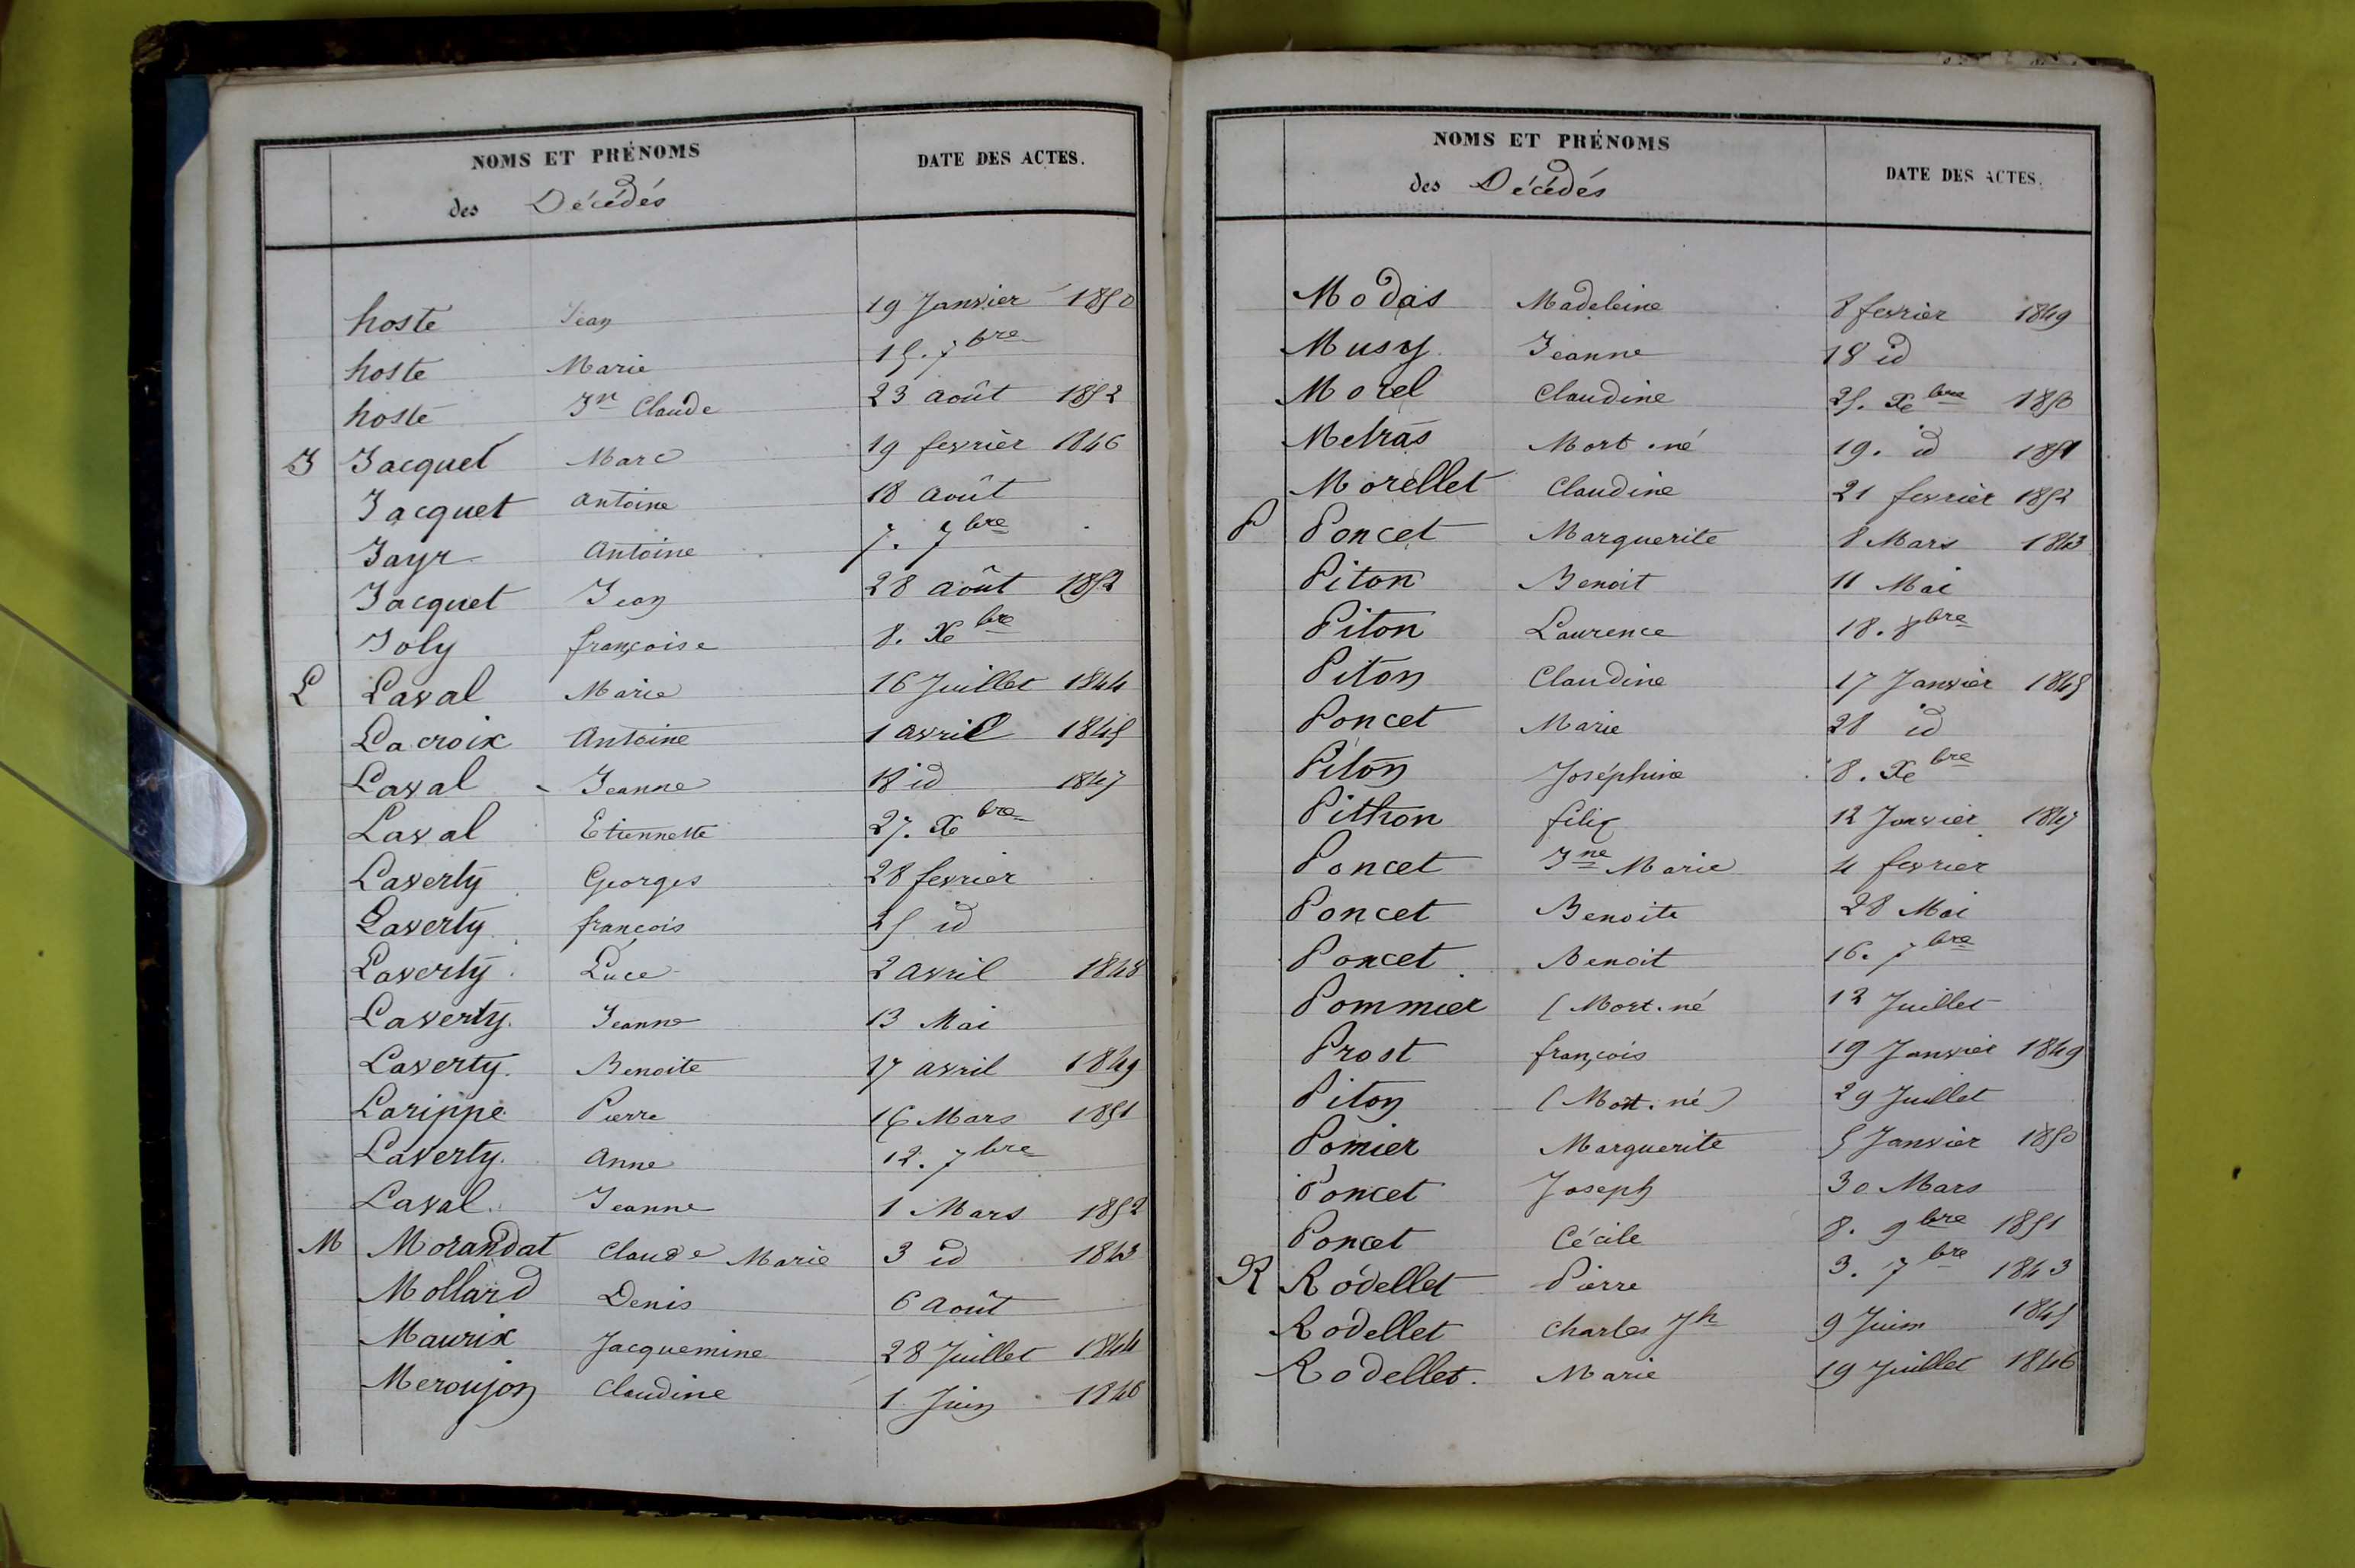 NOMS ET PRÉNOMS DATE DES ACTES.
des Décédés
hoste Jean 19 Janvier 1850
hoste Marie 15. 7bre
hoste Jn Claude 23 août 1852
J Jacquet Marc 19 fevrier 1846
Jacquet antoine 18 août
Jayr antoine 7. 7bre
Jacquet Jean 28 août 1852
Joly françoise 8. Xbre
L Laval Marie 16 Juillet 1844
Lacroix Antoine 1 avril 1845
Laval Jeanne 18 id 1847
Laval Etiennette 27. Xbre
Laverty Georges 28 fevrier
Laverty françois 25 id
Laverty Luce 2 avril 1848
Laverty. Jeanne 13 Mai
Laverty. Benoite 17 avril 1849
Larippe Pierre 16 Mars 1851
Laverty. Anne 12. 7bre
Laval. Jeanne 1 Mars 1852
M Morandat Claude Marie 3 id 1843
Mollard Denis 6 août
Maurix Jacquemine 28 Juillet 1844
Meroujon Claudine 1 Juin 1846
NOMS ET PRÉNOMS DATE DES ACTES.
des Décédés
Modas Madeleine 8 fevrier 1849
Musy Jeanne 18 id
Morel Claudine 25. Xbre 1850
Metras Mort-né 19. id 1851
Morellet Claudine 21 fevrier 1852
P Poncet Marguerite 8 Mars 1843
Piton Benoit 11 Mai
Piton Laurence 18. 8bre
Piton Claudine 17 Janvier 1845
Poncet Marie 28 id
Piton Joséphine 8. Xbre
Pithon félix 12 Janvier 1847
Poncet Jne Marie 4 fevrier
Poncet Benoite 28 Mai
Poncet Benoit 16. 7bre
Pommier (Mort-né 12 Juillet
Prost françois 19 Janvier 1849
Piton (Mort-né) 29 Juillet
Pomier Marguerite 5 Janvier 1850
Poncet Joseph 30 Mars
Poncet Cécile 8. 9bre 1851
R Rodellet Pierre 3. 7bre 1843
Rodellet Charles Jh 9 Juin 1845
Rodellet. Marie 19 Juillet 1846